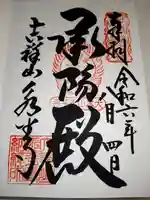 奉拝
令和六年
八月四日
承陽殿
吉祥山永平寺